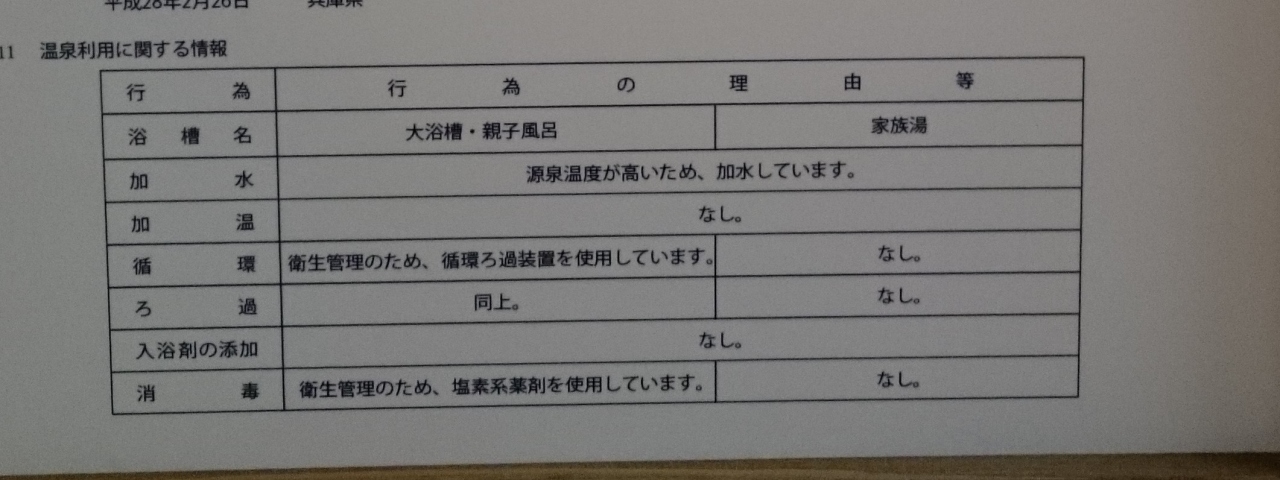 平成28年2月26日 兵庫県
11 温泉利用に関する情報
行為 行為の理由等
浴槽名 大浴槽・親子風呂 家族湯
加水 源泉温度が高いため、加水しています。
加温 なし。
循環 衛生管理のため、循環ろ過装置を使用しています。 なし。
ろ過 同上。 なし。
入浴剤の添加 なし。
消毒 衛生管理のため、塩素系薬剤を使用しています。 なし。